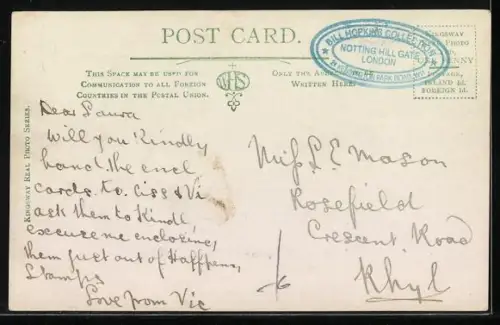 POST CARD.
BILL HOPKINS COLLECTION
NOTTING HILL GATE,
LONDON
KINGSWAY
PHOTO
PENNY
INLAND ½d.
FOREIGN 1d.
THIS SPACE MAY BE USED FOR
COMMUNICATION TO ALL FOREIGN
COUNTRIES IN THE POSTAL UNION.
ONLY THE
WRITTEN HERE
KINGSWAY REAL PHOTO SERIES.
Dear Laura
Will you kindly
hand the encl
cards to Ciss & Vi
ask them to kindl
excuse me enclosing
them just out of Halfpenny
Stamps
Love from Vic
Miss L E Mason
Rosefield
Crescent Road
Rhyl